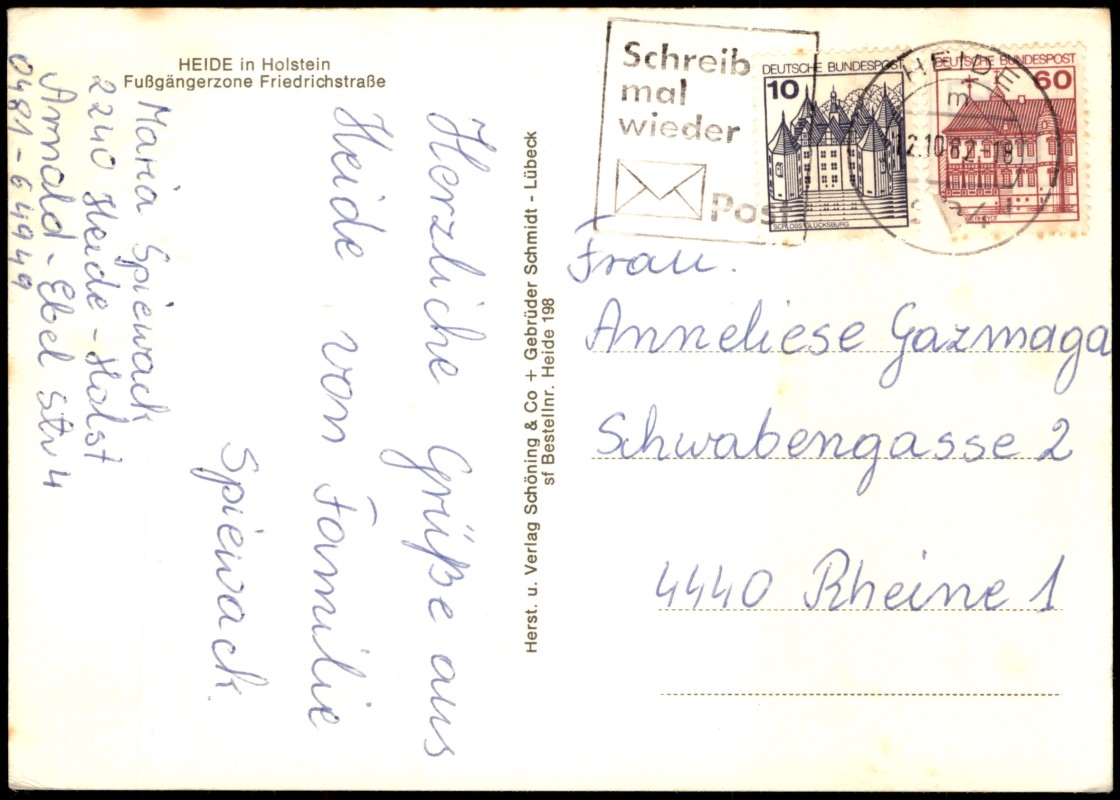 HEIDE in Holstein
Fußgängerzone Friedrichstraße
Maria Spiewack
2240 Heide-Holst
Arnold-Ebel Str 4
0481-64949
Herzliche Grüße aus
Heide von Familie
Spiewack.
Herst. u. Verlag Schöning & Co + Gebrüder Schmidt - Lübeck
sf Bestellnr. Heide 198
Schreib
mal
wieder
Post
DEUTSCHE BUNDESPOST
10
SCHLOSS GLÜCKSBURG
DEUTSCHE BUNDESPOST
60
RHEYDT
HEIDE
m
12.10.82.-18
Frau.
Anneliese Gazmaga
Schwabengasse 2
4440 Rheine 1